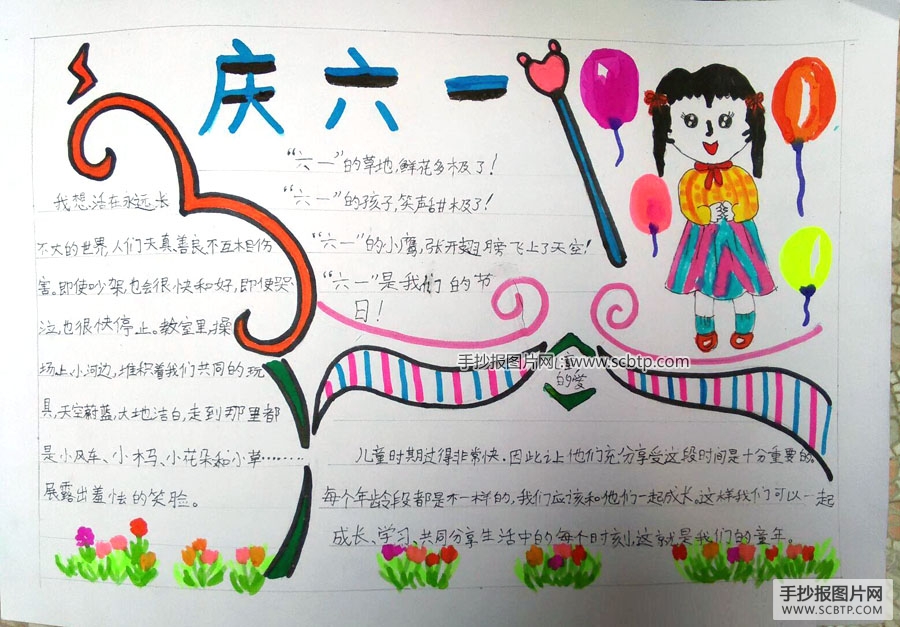 庆六一
“六一”的草地,鲜花多极了!
“六一”的孩子,笑声甜极了!
“六一”的小鹰,张开翅膀飞上了天空!
“六一”是我们的节
日!
我想活在永远长
不大的世界,人们天真善良,不互相伤
害。即使吵架也会很快和好,即使哭
泣,也很快停止。教室里,操
场上,小河边,堆积着我们共同的玩
具,天空蔚蓝,大地洁白,走到那里都
是小风车、小木马、小花朵和小草………
展露出羞怯的笑脸。
手抄报图片网:www.scbtp.com
童
的爱
儿童时期过得非常快.因此让他们充分享受这段时间是十分重要的.
每个年龄段都是不一样的,我们应该和他们一起成长。这样我们可以一起
成长、学习、共同分享生活中的每个时刻,这就是我们的童年。
手抄报图片网
WWW.SCBTP.COM